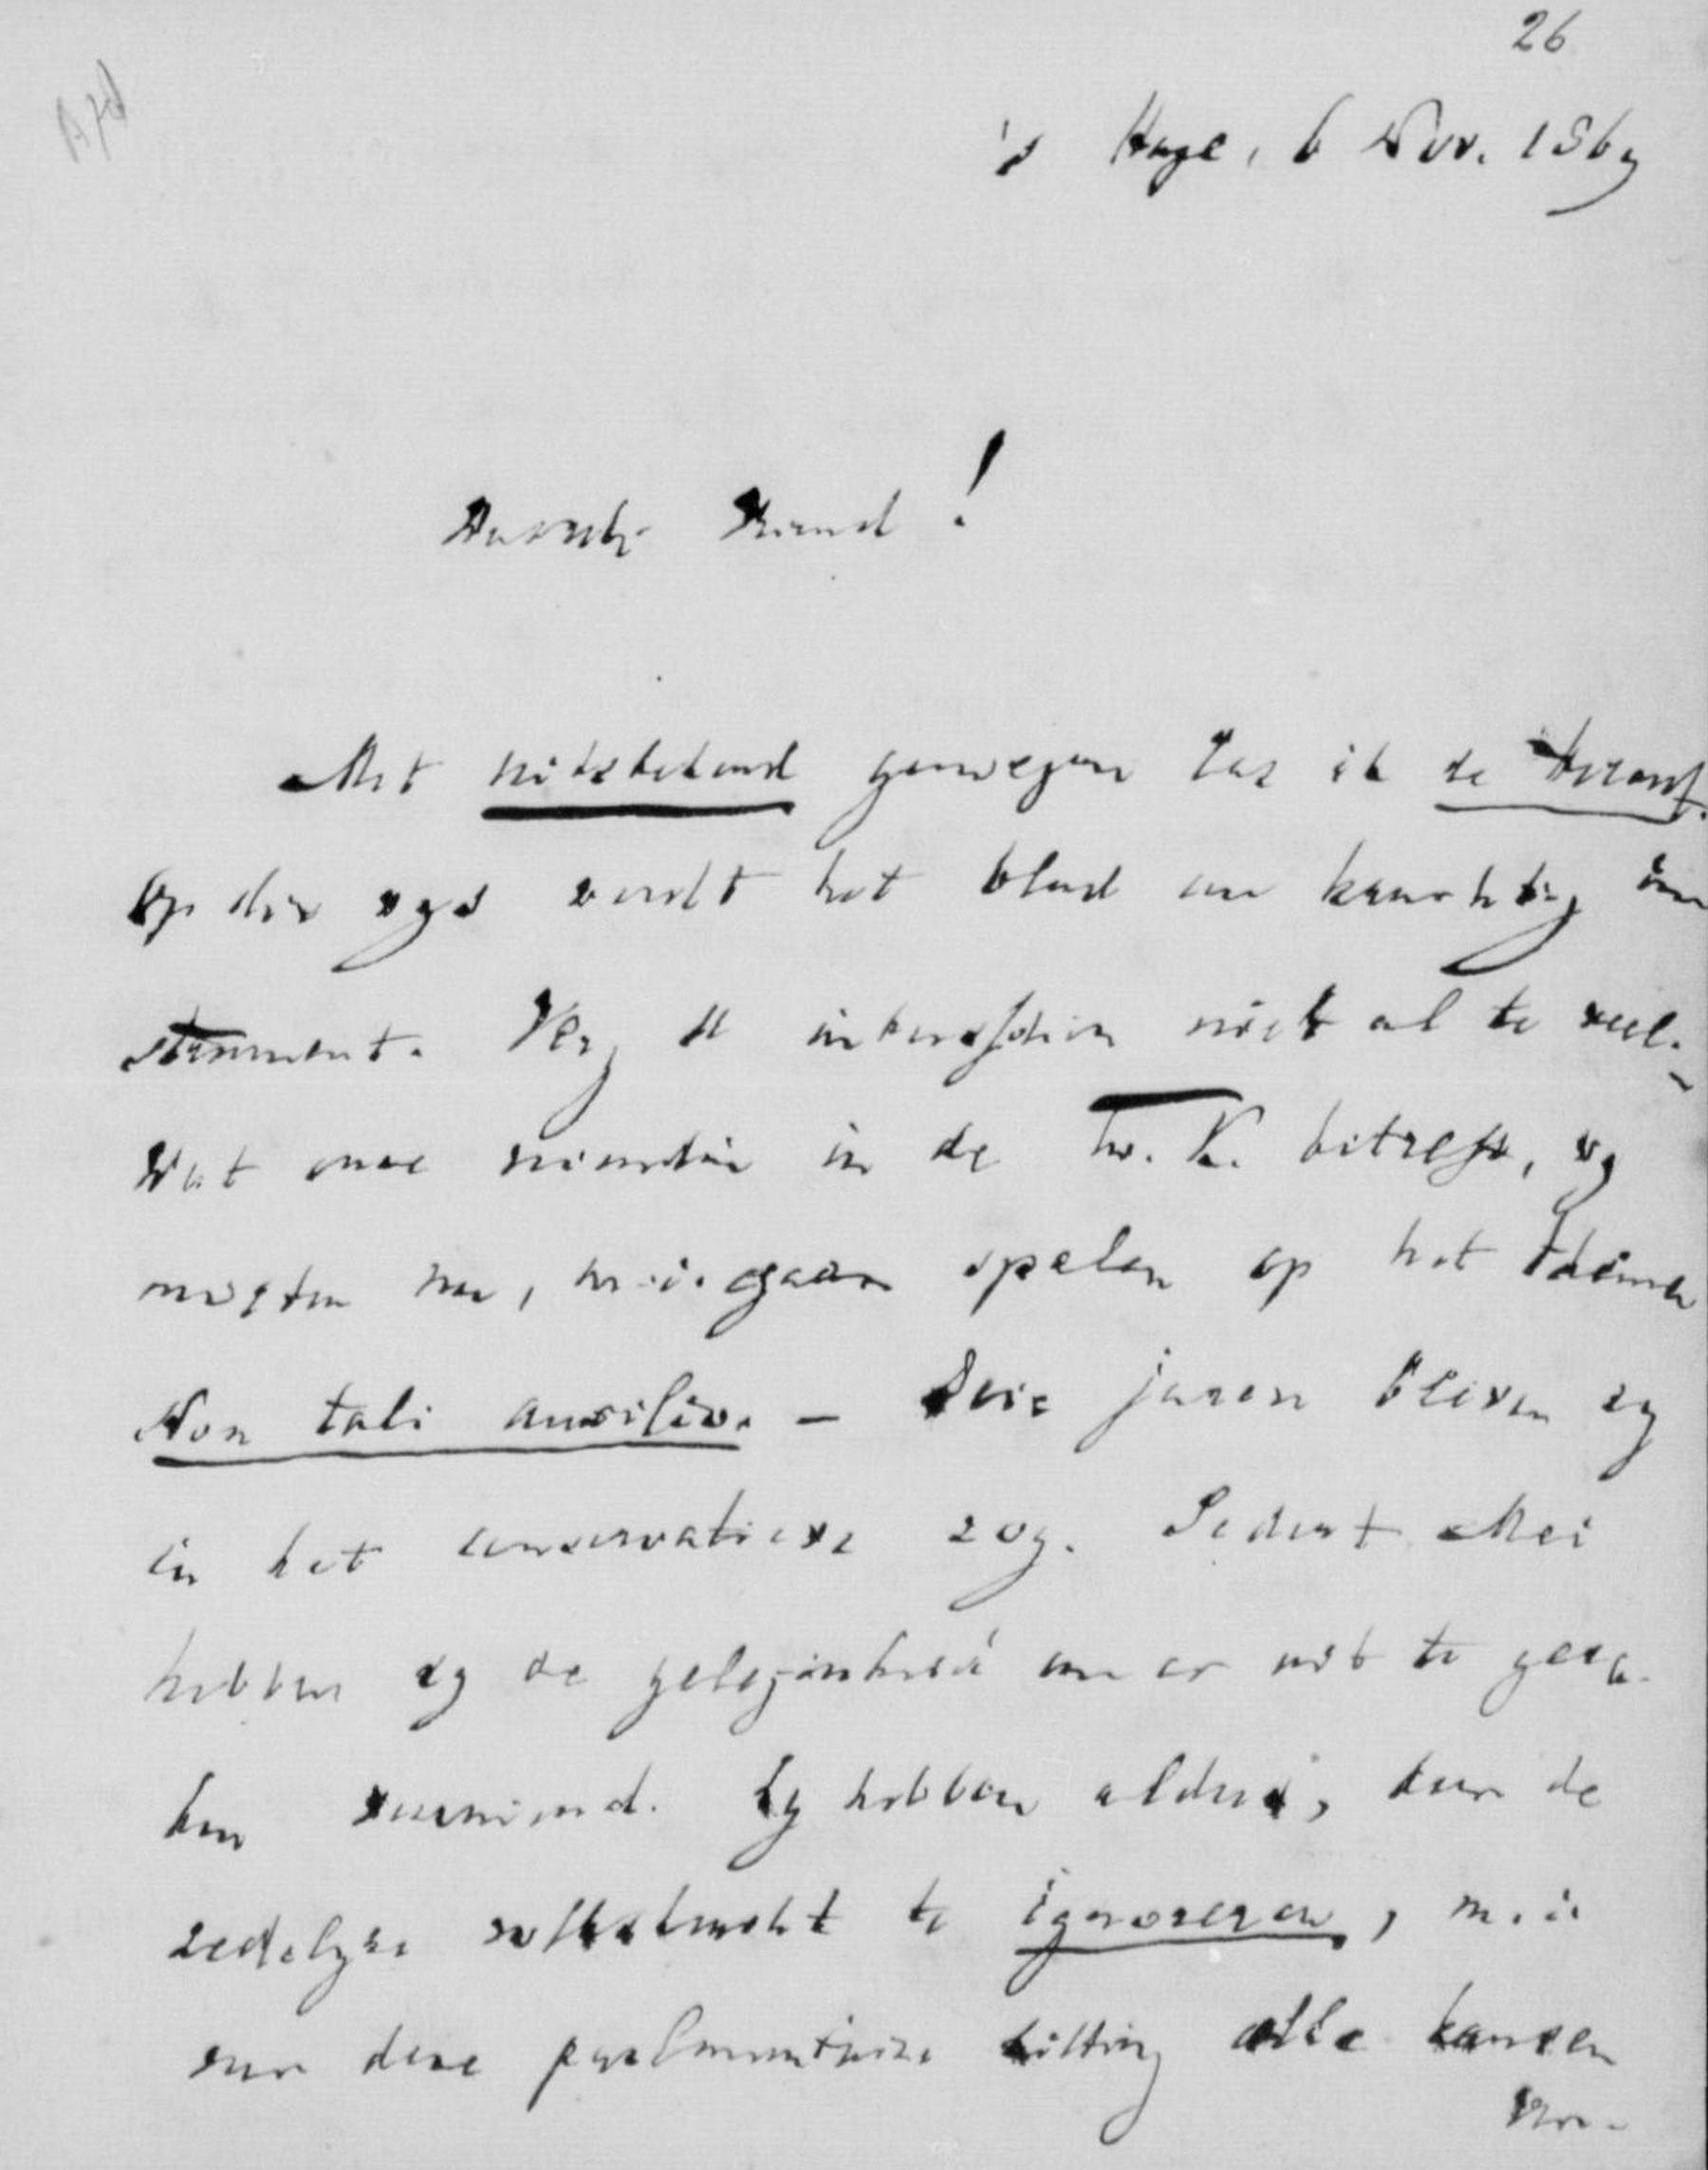 26
's Hage, 6 Nov. 1869
Waarde Vriend!
Met uitstekend genoegen las ik de Heraut.
Op die wys wordt het blad een krachtig in
strument. Verg U intusschen niet al te veel.
Wat onze vrienden in de Tw. K. betreft, wy
moeten nu, m.i. gaan spelen op het thema
Non tali auxilio. — Drie jaren bleven zy
in het conservatieve zog. Sedert Mei
hebben zy de gelegenheid om er uit te gera-
ken verzuimd. Zy hebben aldus, door de
zedelyke volkskracht te ignoreren, m.i.
voor deze parlementaire zitting alle kansen